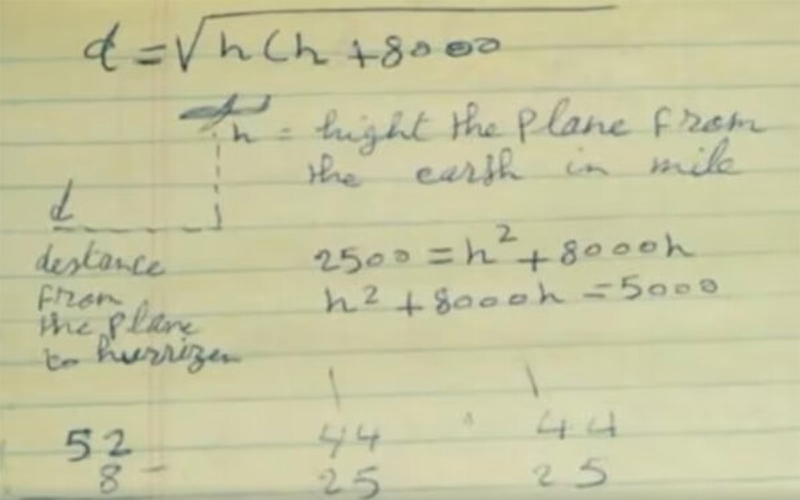 d = √h(h + 8000
h = hight the plane from
the earth in mile
d
destance
from
the plane
to hurrizen
2500 = h² + 8000h
h² + 8000h = 5000
52 44 44
8 25 25